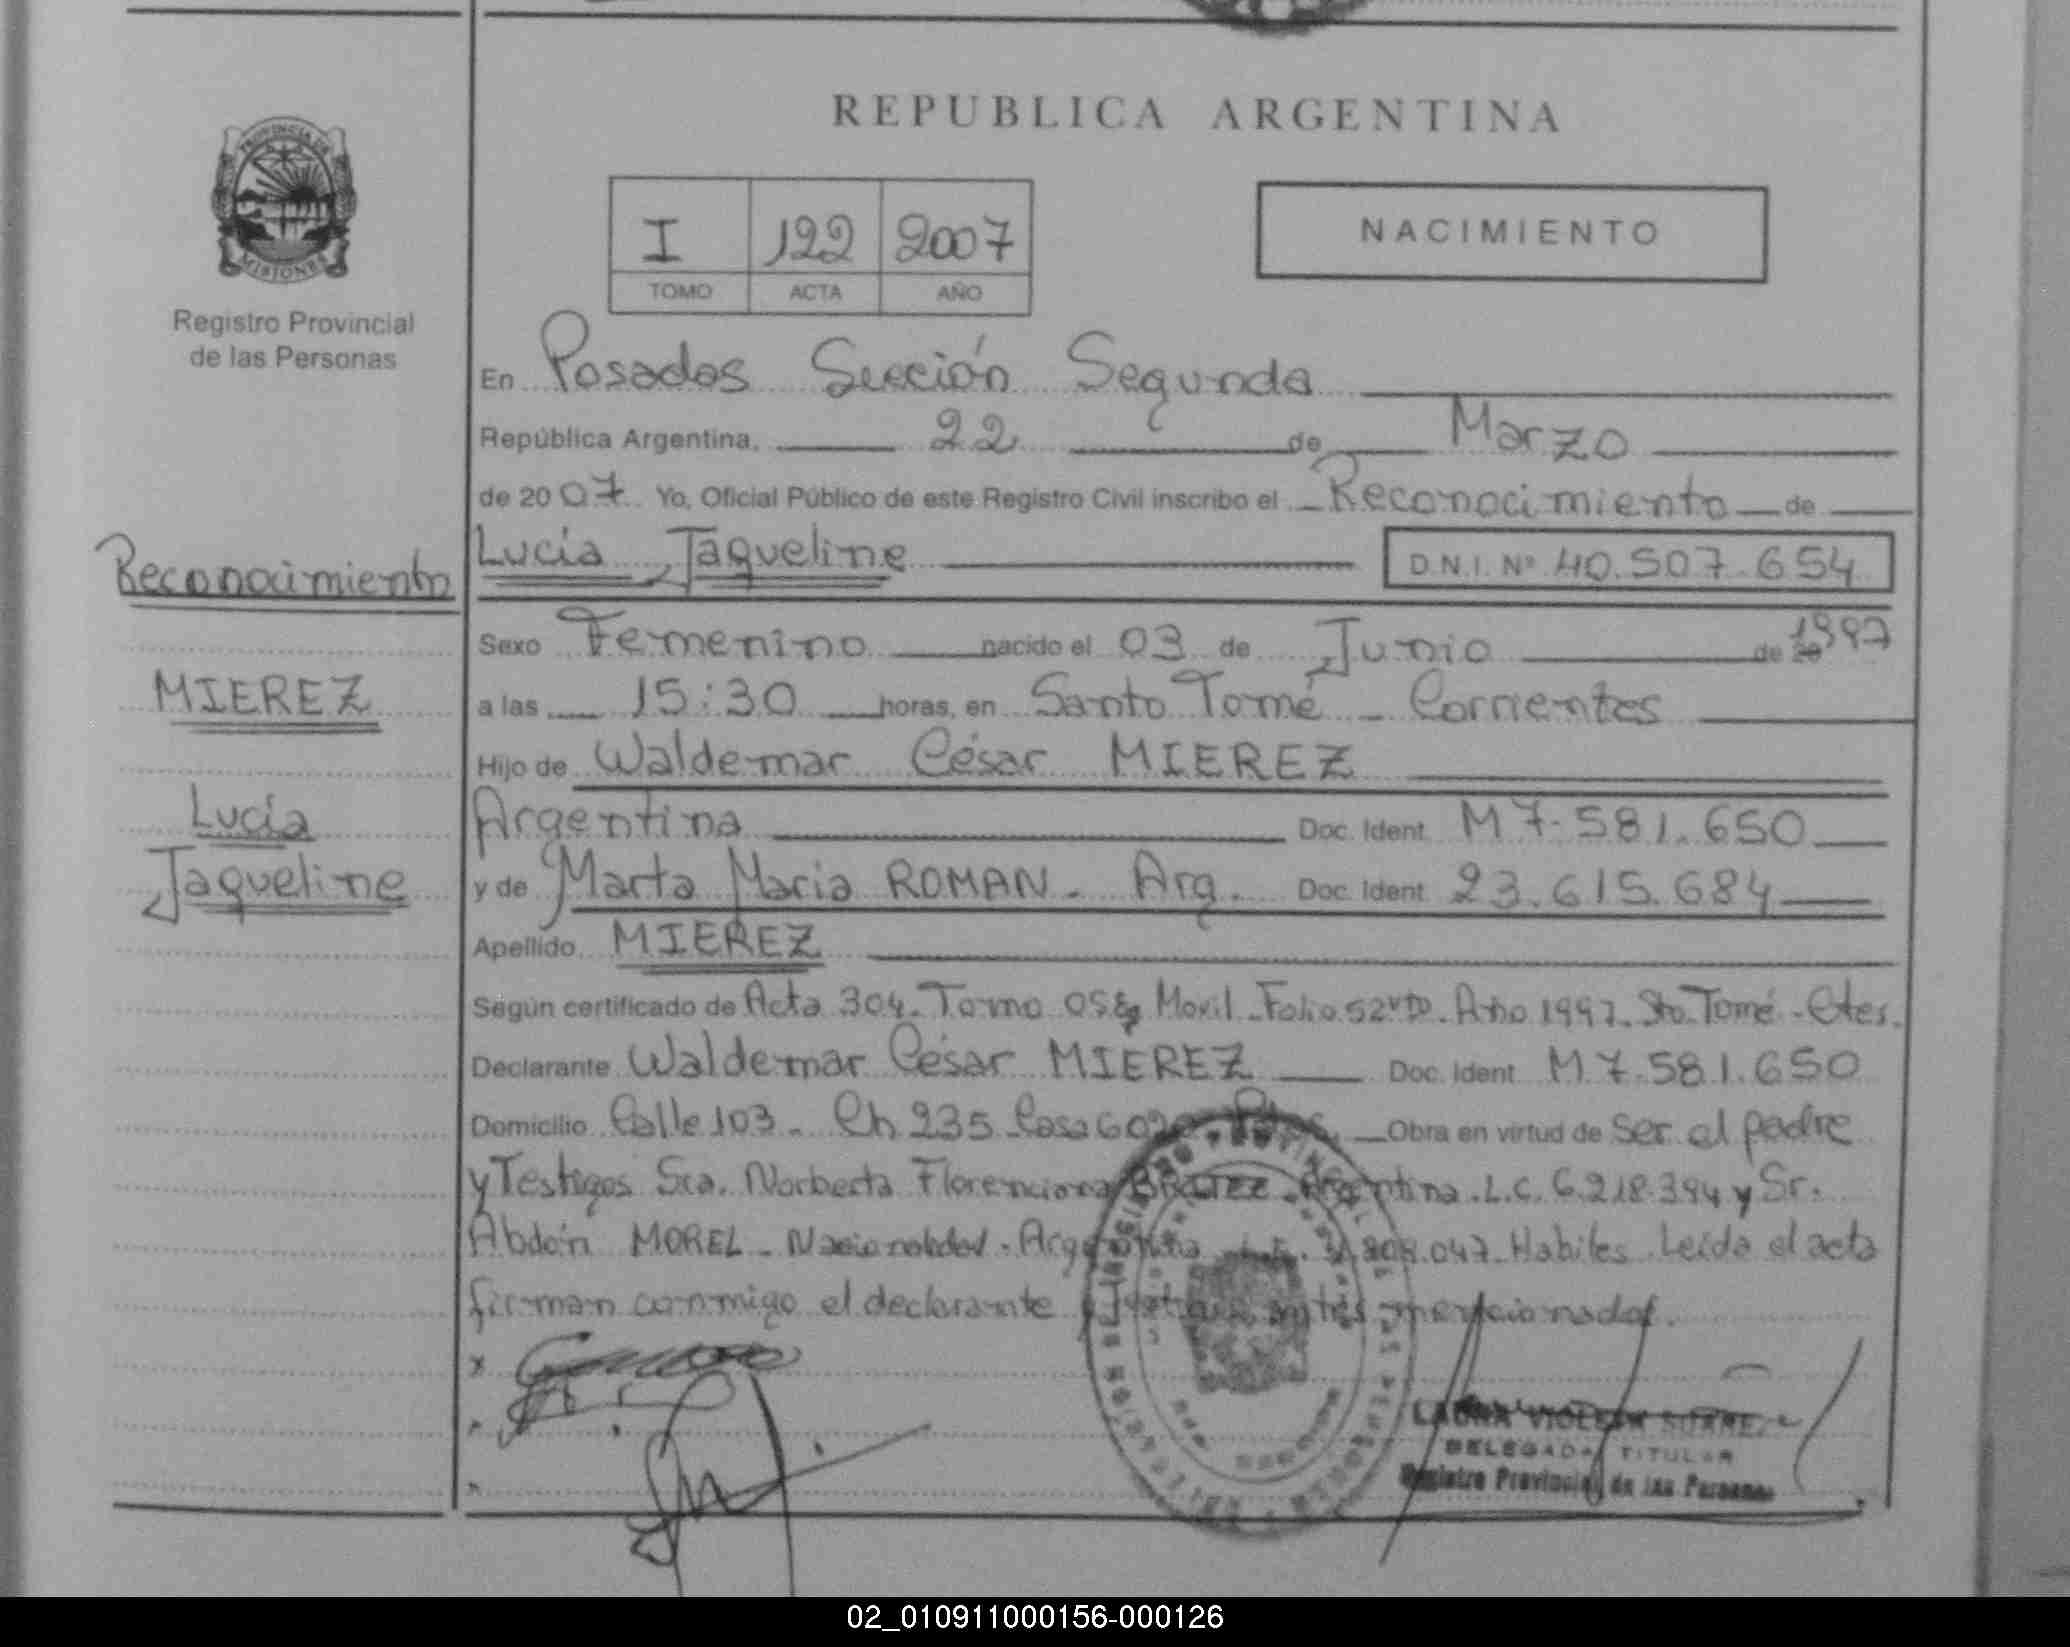 REPUBLICA ARGENTINA
PROVINCIA DE
MISIONES
Registro Provincial
de las Personas
I 122 2007
TOMO ACTA AÑO
NACIMIENTO
En Posadas Sección Segunda
República Argentina, 22 de Marzo
de 2007. Yo, Oficial Público de este Registro Civil inscribo el Reconocimiento de
Lucía Jaqueline D.N.I. Nº 40.507.654
Reconocimiento
MIEREZ
Lucía
Jaqueline
Sexo Femenino nacido el 03 de Junio de 1997
a las 15:30 horas, en Santo Tomé - Corrientes
Hijo de Waldemar César MIEREZ
Argentina Doc. Ident. M 7.581.650
y de Marta Maria ROMAN. Arg. Doc. Ident. 23.615.684
Apellido MIEREZ
Según certificado de Acta 304. Tomo Movil. Folio 52 vto. Año 1997. Sto. Tomé - Ctes.
Declarante Waldemar César MIEREZ Doc. Ident. M.7.581.650
Domicilio Calle 103. Ch 235 Casa Obra en virtud de Ser el padre
y Testigos Sra. Norberta Argentina. L.C. 6.218.394 y Sr.
Abdón MOREL - Nacionalidad. Argentina Habiles. Leída el acta
firman conmigo el declarante y testigos antes mencionados.
DELEGADA TITULAR
Registro Provincial de las Personas
02_010911000156-000126